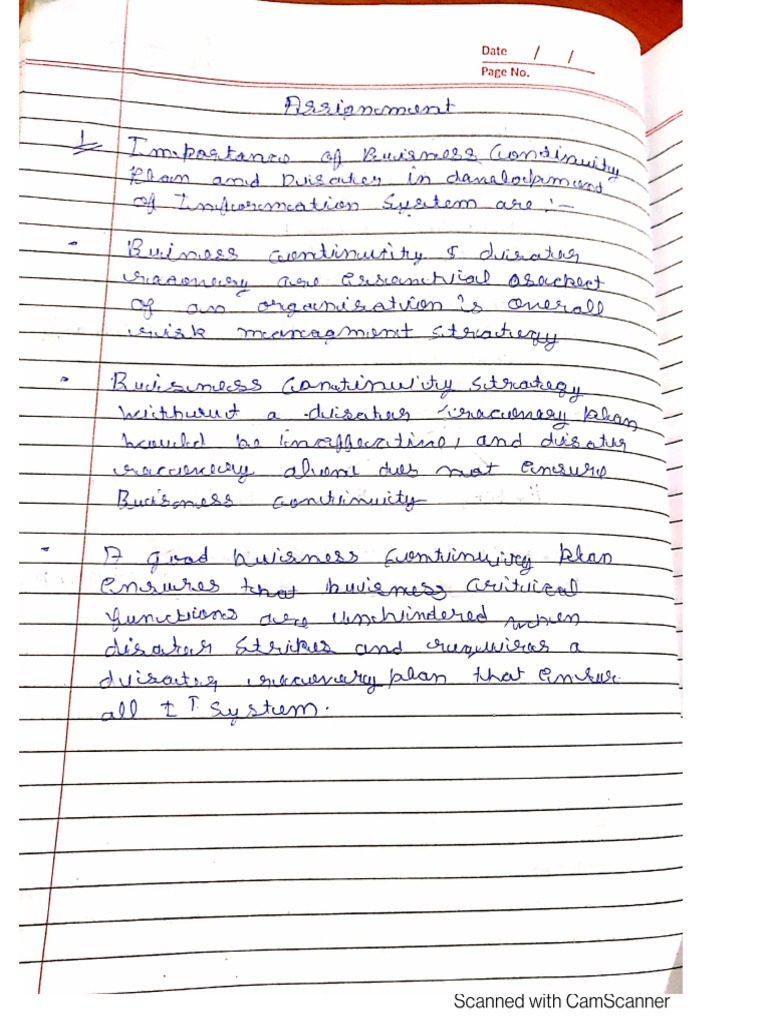 Date / /
Page No.
Assignment
1. Importance of Business Continuity
Plan and Disaster in development
of Information System are :-
- Business continuity & disaster
recovery are essential aspect
of an organisation is overall
risk management strategy
- Business Continuity strategy
without a disaster recovery plan
would be ineffective, and disaster
recovery alone does not ensure
Business continuity
- A good business continuity plan
ensures that business critical
functions are unhindered when
disaster strikes and requires a
disaster recovery plan that ensure
all IT system.
Scanned with CamScanner